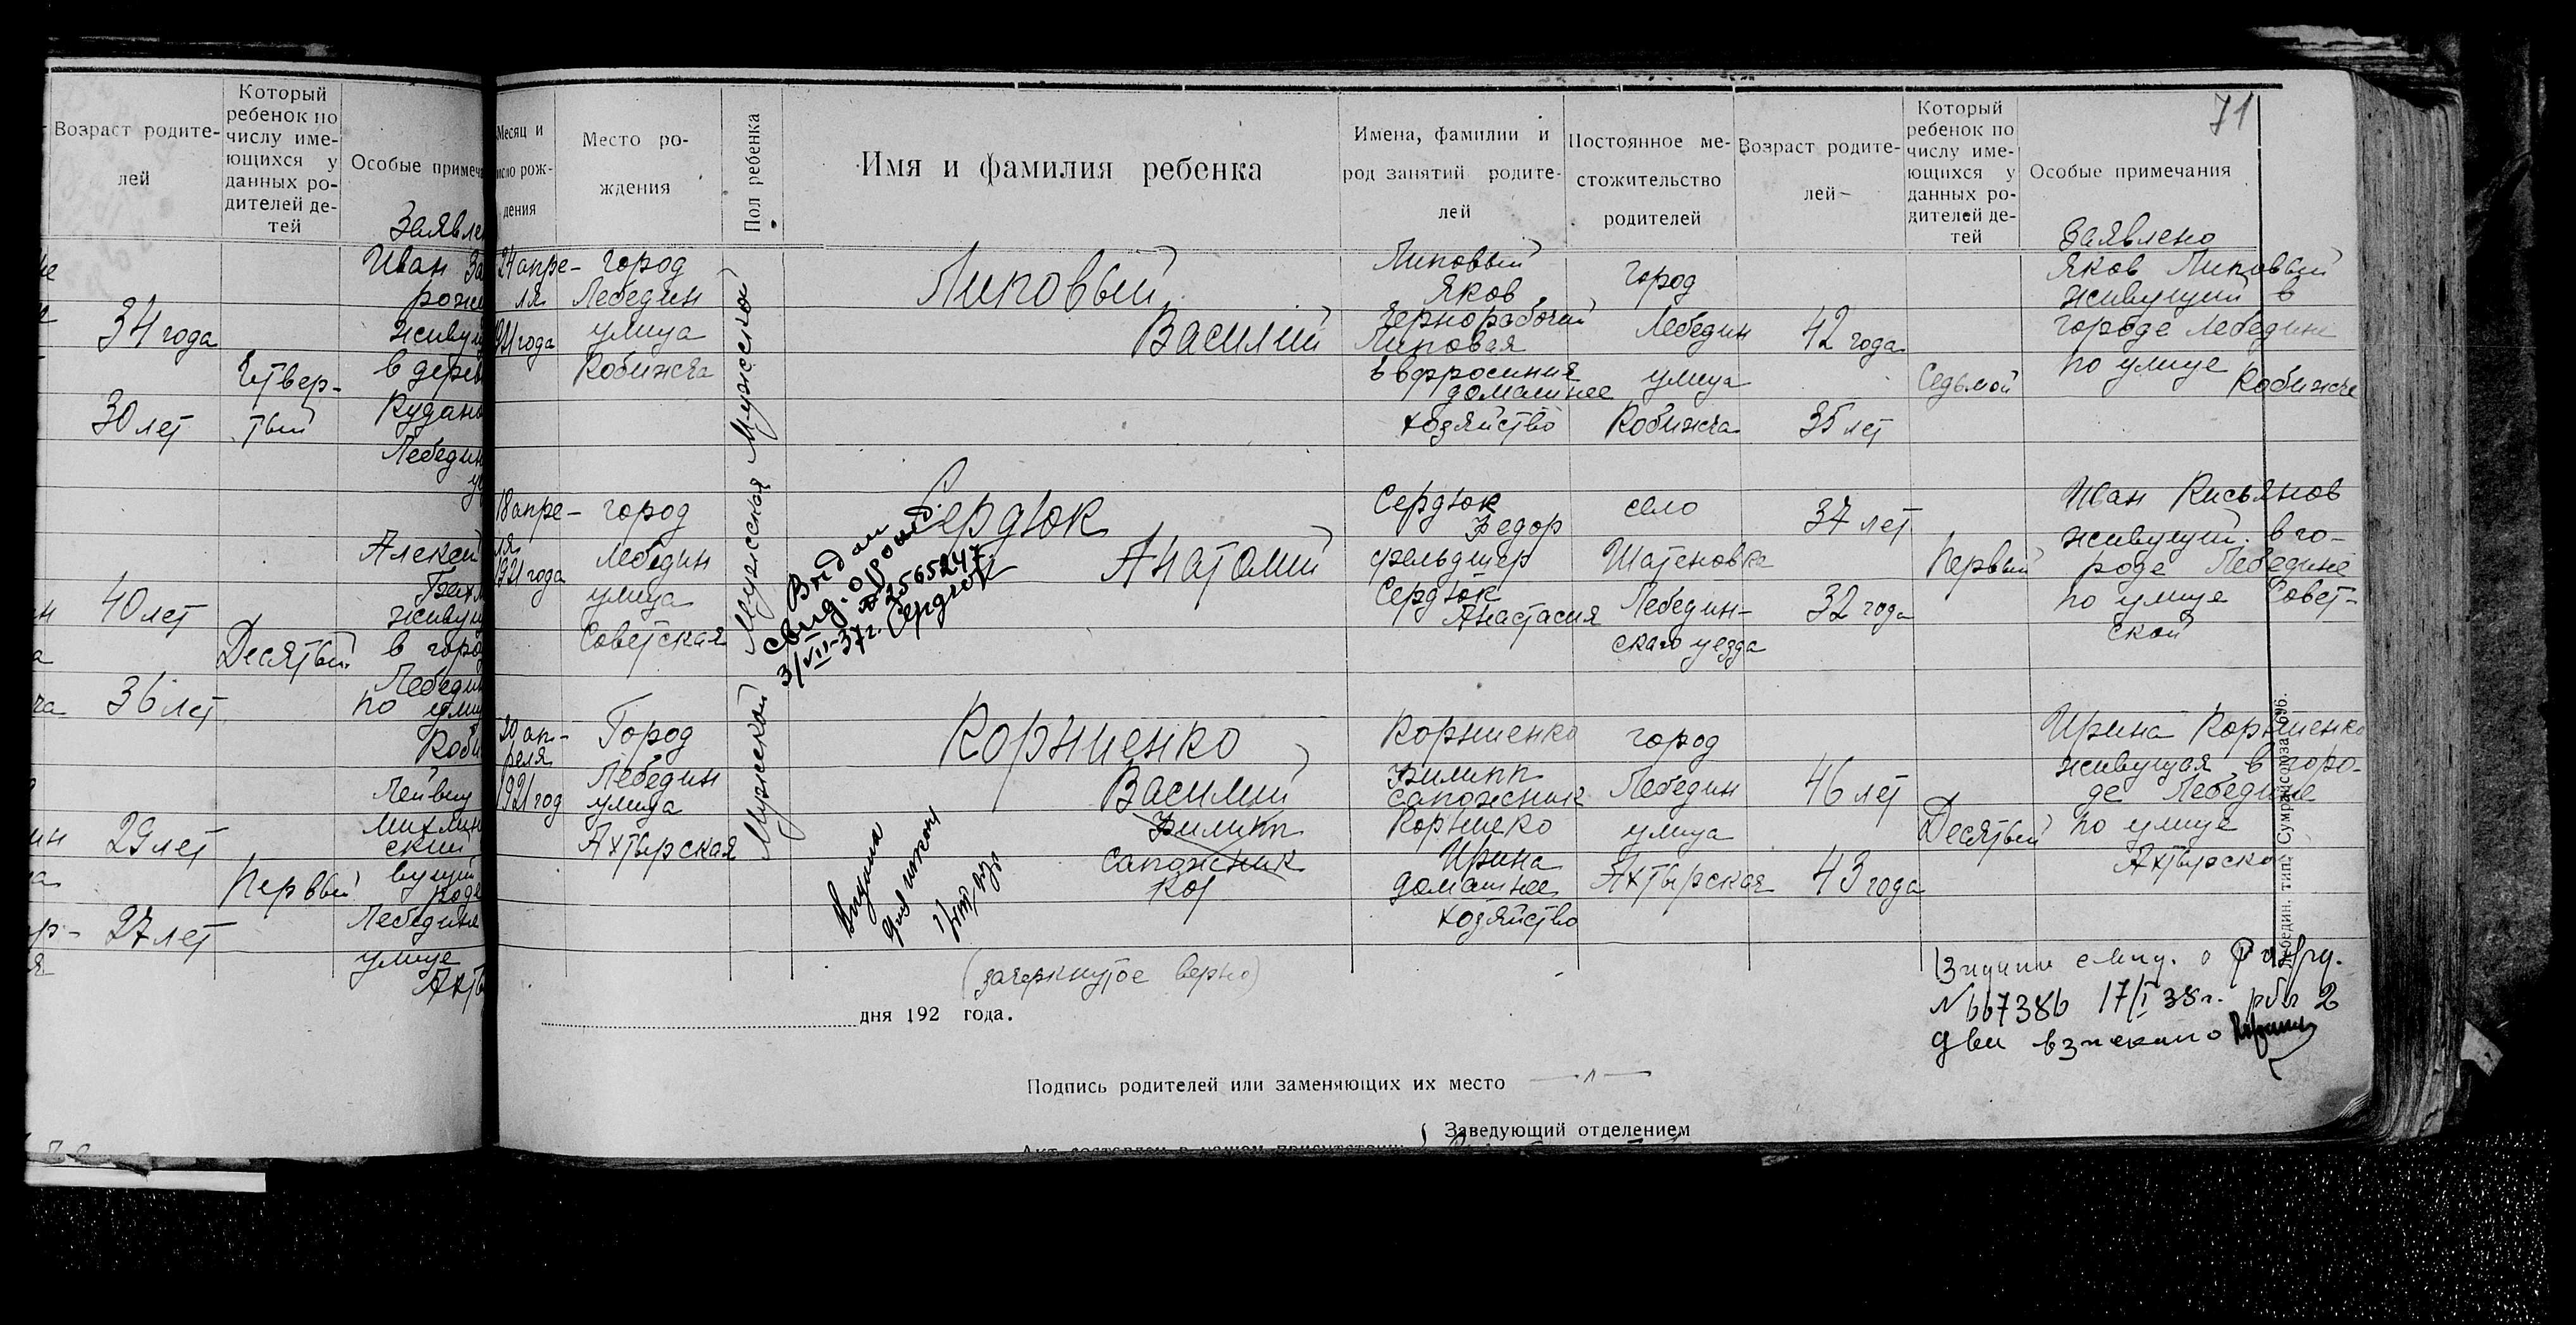 Возраст родите-
лей
Который
ребенок по
числу име-
ющихся у
данных ро-
дителей де-
тей
Особые примеча
Заявле
34 года
30 лет
Четвер-
тый
Иван За
рожи
живущ
в дерев
Кудано
Лебедин
40 лет
36 лет
Десятый
Алексей
живущ
в горо
Лебедин
по улиц
Коби
29 лет
27 лет
Первый
ский
вущий
роде
Лебедине
улице
Ахты
71
Месяц и
число рож-
дения
Место ро-
ждения
Пол ребенка
Имя и фамилия ребенка
Имена, фамилии и
род занятий родите-
лей
Постоянное ме-
стожительство
родителей
Возраст родите-
лей
Который
ребенок по
числу име-
ющихся у
данных ро-
дителей де-
тей
Особые примечания
Заявлено
24 апре-
ля
1921 года
город
Лебедин
улица
Кобижча
Мужской
Липовый
Василий
Липовый
Яков
чернорабочий
Липовая
Ефросиния
домашнее
хозяйство
город
Лебедин
улица
Кобижча
42 года
35 лет
Седьмой
Яков Липовый
живущий в
городе Лебедине
по улице
Кобижче
18 апре-
ля
1921 года
город
Лебедин
улица
Советская
Мужеская
Выдан
свид. о рожд.
№ 2565247
3/VII-37 г. Сердюк
Сердюк
Анатолий
Сердюк
Федор
фельдшер
Сердюк
Анастасия
село
Шатеновка
Лебедин-
скаго уезда
37 лет
32 года
Первый
Иван Касьянов
живущий в го-
роде Лебедине
по улице Совет-
ской
20 ап-
реля
1921 год
Город
Лебедин
улица
Ахтырская
Мужской
Корниенко
Василий
Филипп
Сапожник
Кор
Корниенко
Филипп
сапожник
Корниеко
Ирина
домашнее
хозяйство
город
Лебедин
улица
Ахтырская
46 лет
43 года
Десятый
Ирина Корниенко
живущая в горо-
де Лебедине
по улице
Ахтырско
Видана
для школы
(зачеркнутое верно)
свид. о
№ 667386 17/I 38 г. 2
два взыскано
дня 192 года.
Подпись родителей или заменяющих их место
Заведующий отделением
Акт составлен в нашем присутствии:
Лебедин. тип. Сумрайсоюза